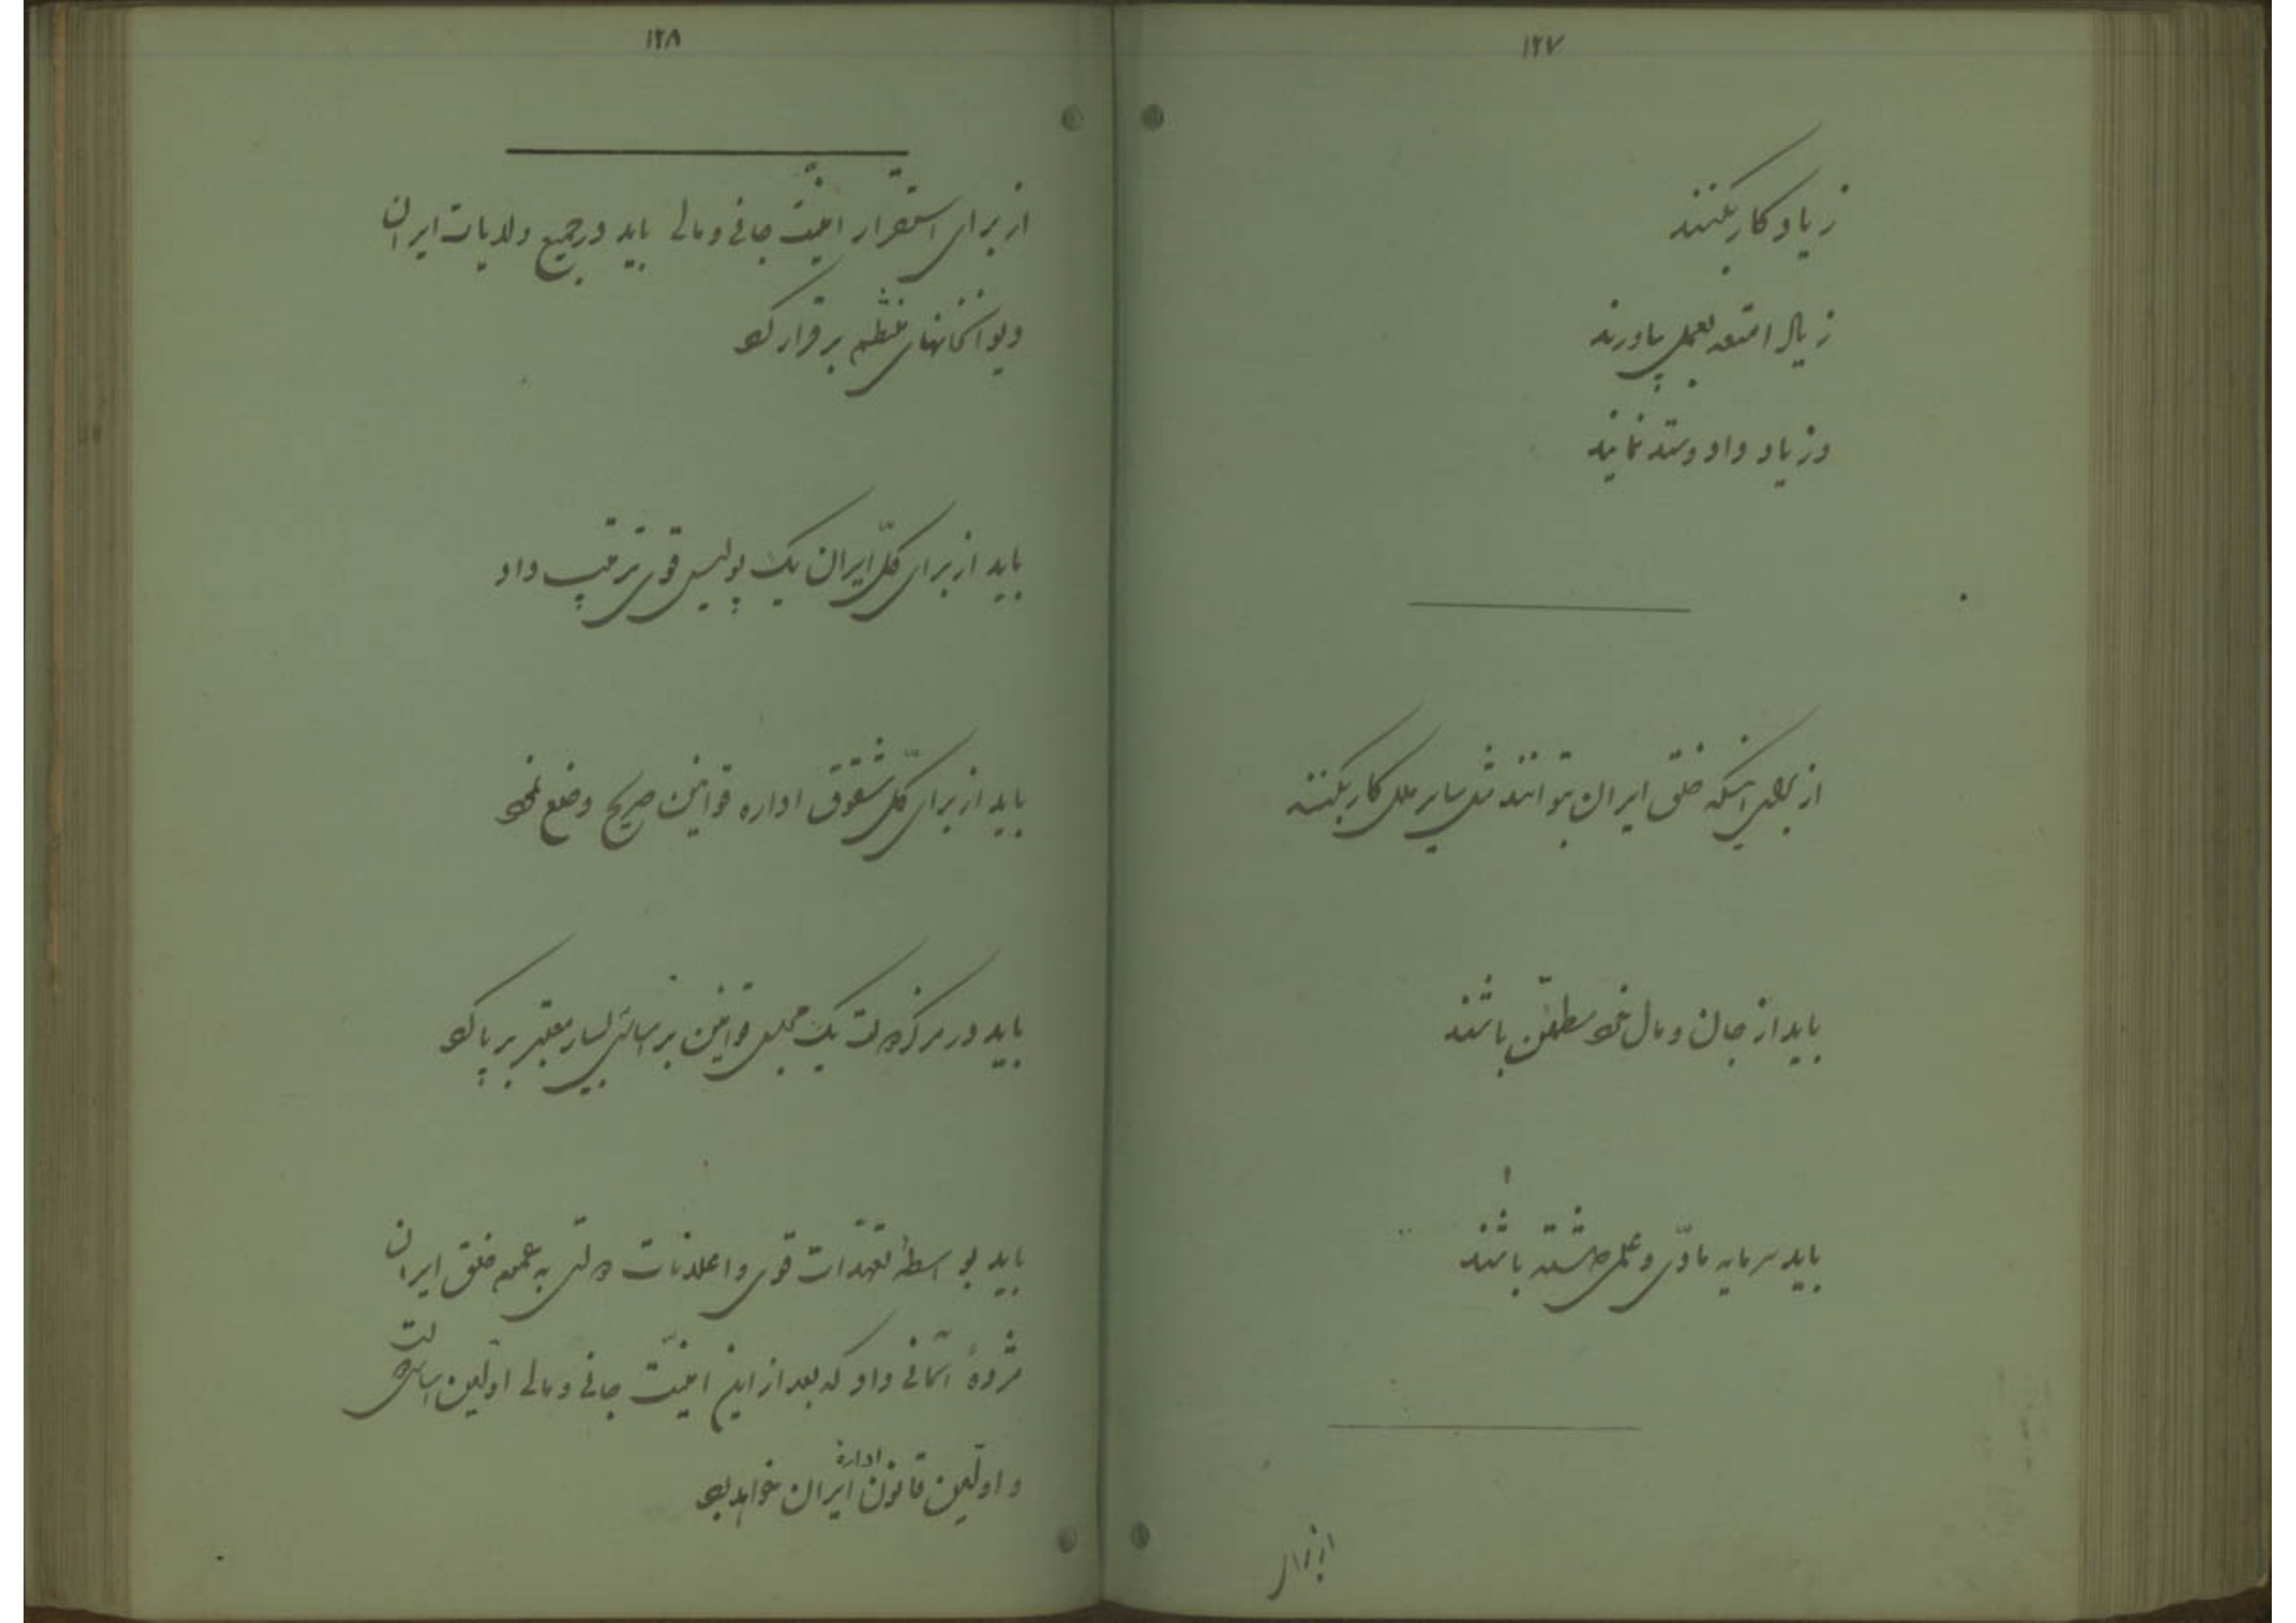 ۱۲۷
زیاد کار بکنند
زیاد امتعه بعمل بیاورند
و زیاد داد و ستد نمایند
از برای اینکه خلق ایران بتوانند مثل سایر ملل کار بکنند
باید از جان و مال خود مطمئن باشند
باید سرمایه مادّی و علمی داشته باشند
از برای
۱۲۸
از برای استقرار امنیّت جانی و مالی باید در جمیع ولایات ایران
دیوانخانهای منظم برقرار کرد
باید از برای کلّ ایران یک پولیس قوی ترتیب داد
باید از برای کلّ شقوق اداره قوانین صریح وضع نمود
باید در مرکز دولت یک مجلس قوانین بر اساس بسیار معتبر بر پا کرد
باید بواسطهٔ تعهّدات قوی و اعلانات دولتی به عموم خلق ایران
مژدهٔ آسمانی داد که بعد از این امنیّت جانی و مالی اوّلین اساس دولت
و اوّلین قانون ادارهٔ ایران خواهد بود